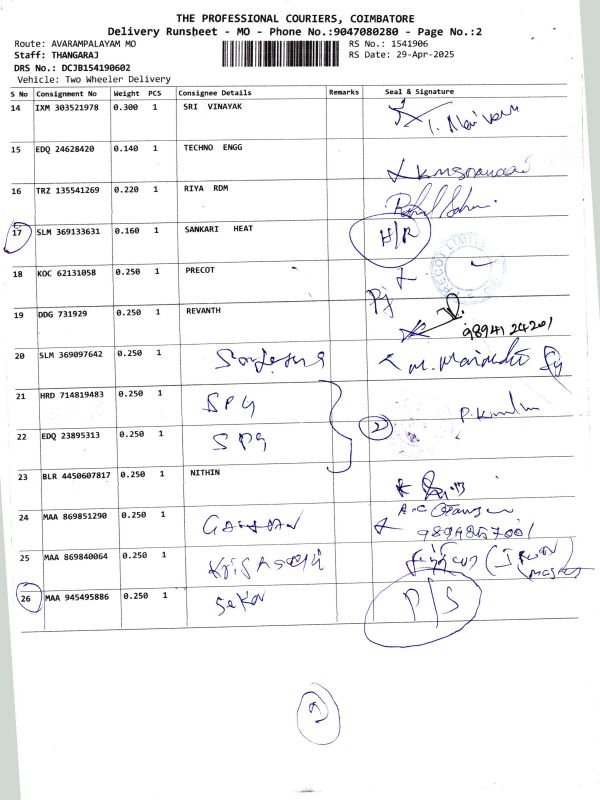 THE PROFESSIONAL COURIERS, COIMBATORE
Delivery Runsheet - MO - Phone No.:9047080280 - Page No.:2
Route: AVARAMPALAYAM MO RS No.: 1541906
Staff: THANGARAJ RS Date: 29-Apr-2025
DRS No.: DCJB154190602
Vehicle: Two Wheeler Delivery
S No Consignment No Weight PCS Consignee Details Remarks Seal & Signature
14 IXM 303521978 0.300 1 SRI VINAYAK
15 EDQ 24628420 0.140 1 TECHNO ENGG
16 TRZ 135541269 0.220 1 RIYA RDM
17 SLM 369133631 0.160 1 SANKARI HEAT H/R
18 KOC 62131058 0.250 1 PRECOT
19 DDG 731929 0.250 1 REVANTH 9894124201
20 SLM 369097642 0.250 1
21 HRD 714819483 0.250 1 SPG
22 EDQ 23895313 0.250 1 SPG 2
23 BLR 4450607817 0.250 1 NITHIN
24 MAA 869851290 0.250 1
25 MAA 869840064 0.250 1
26 MAA 945495886 0.250 1 Sekar P/S